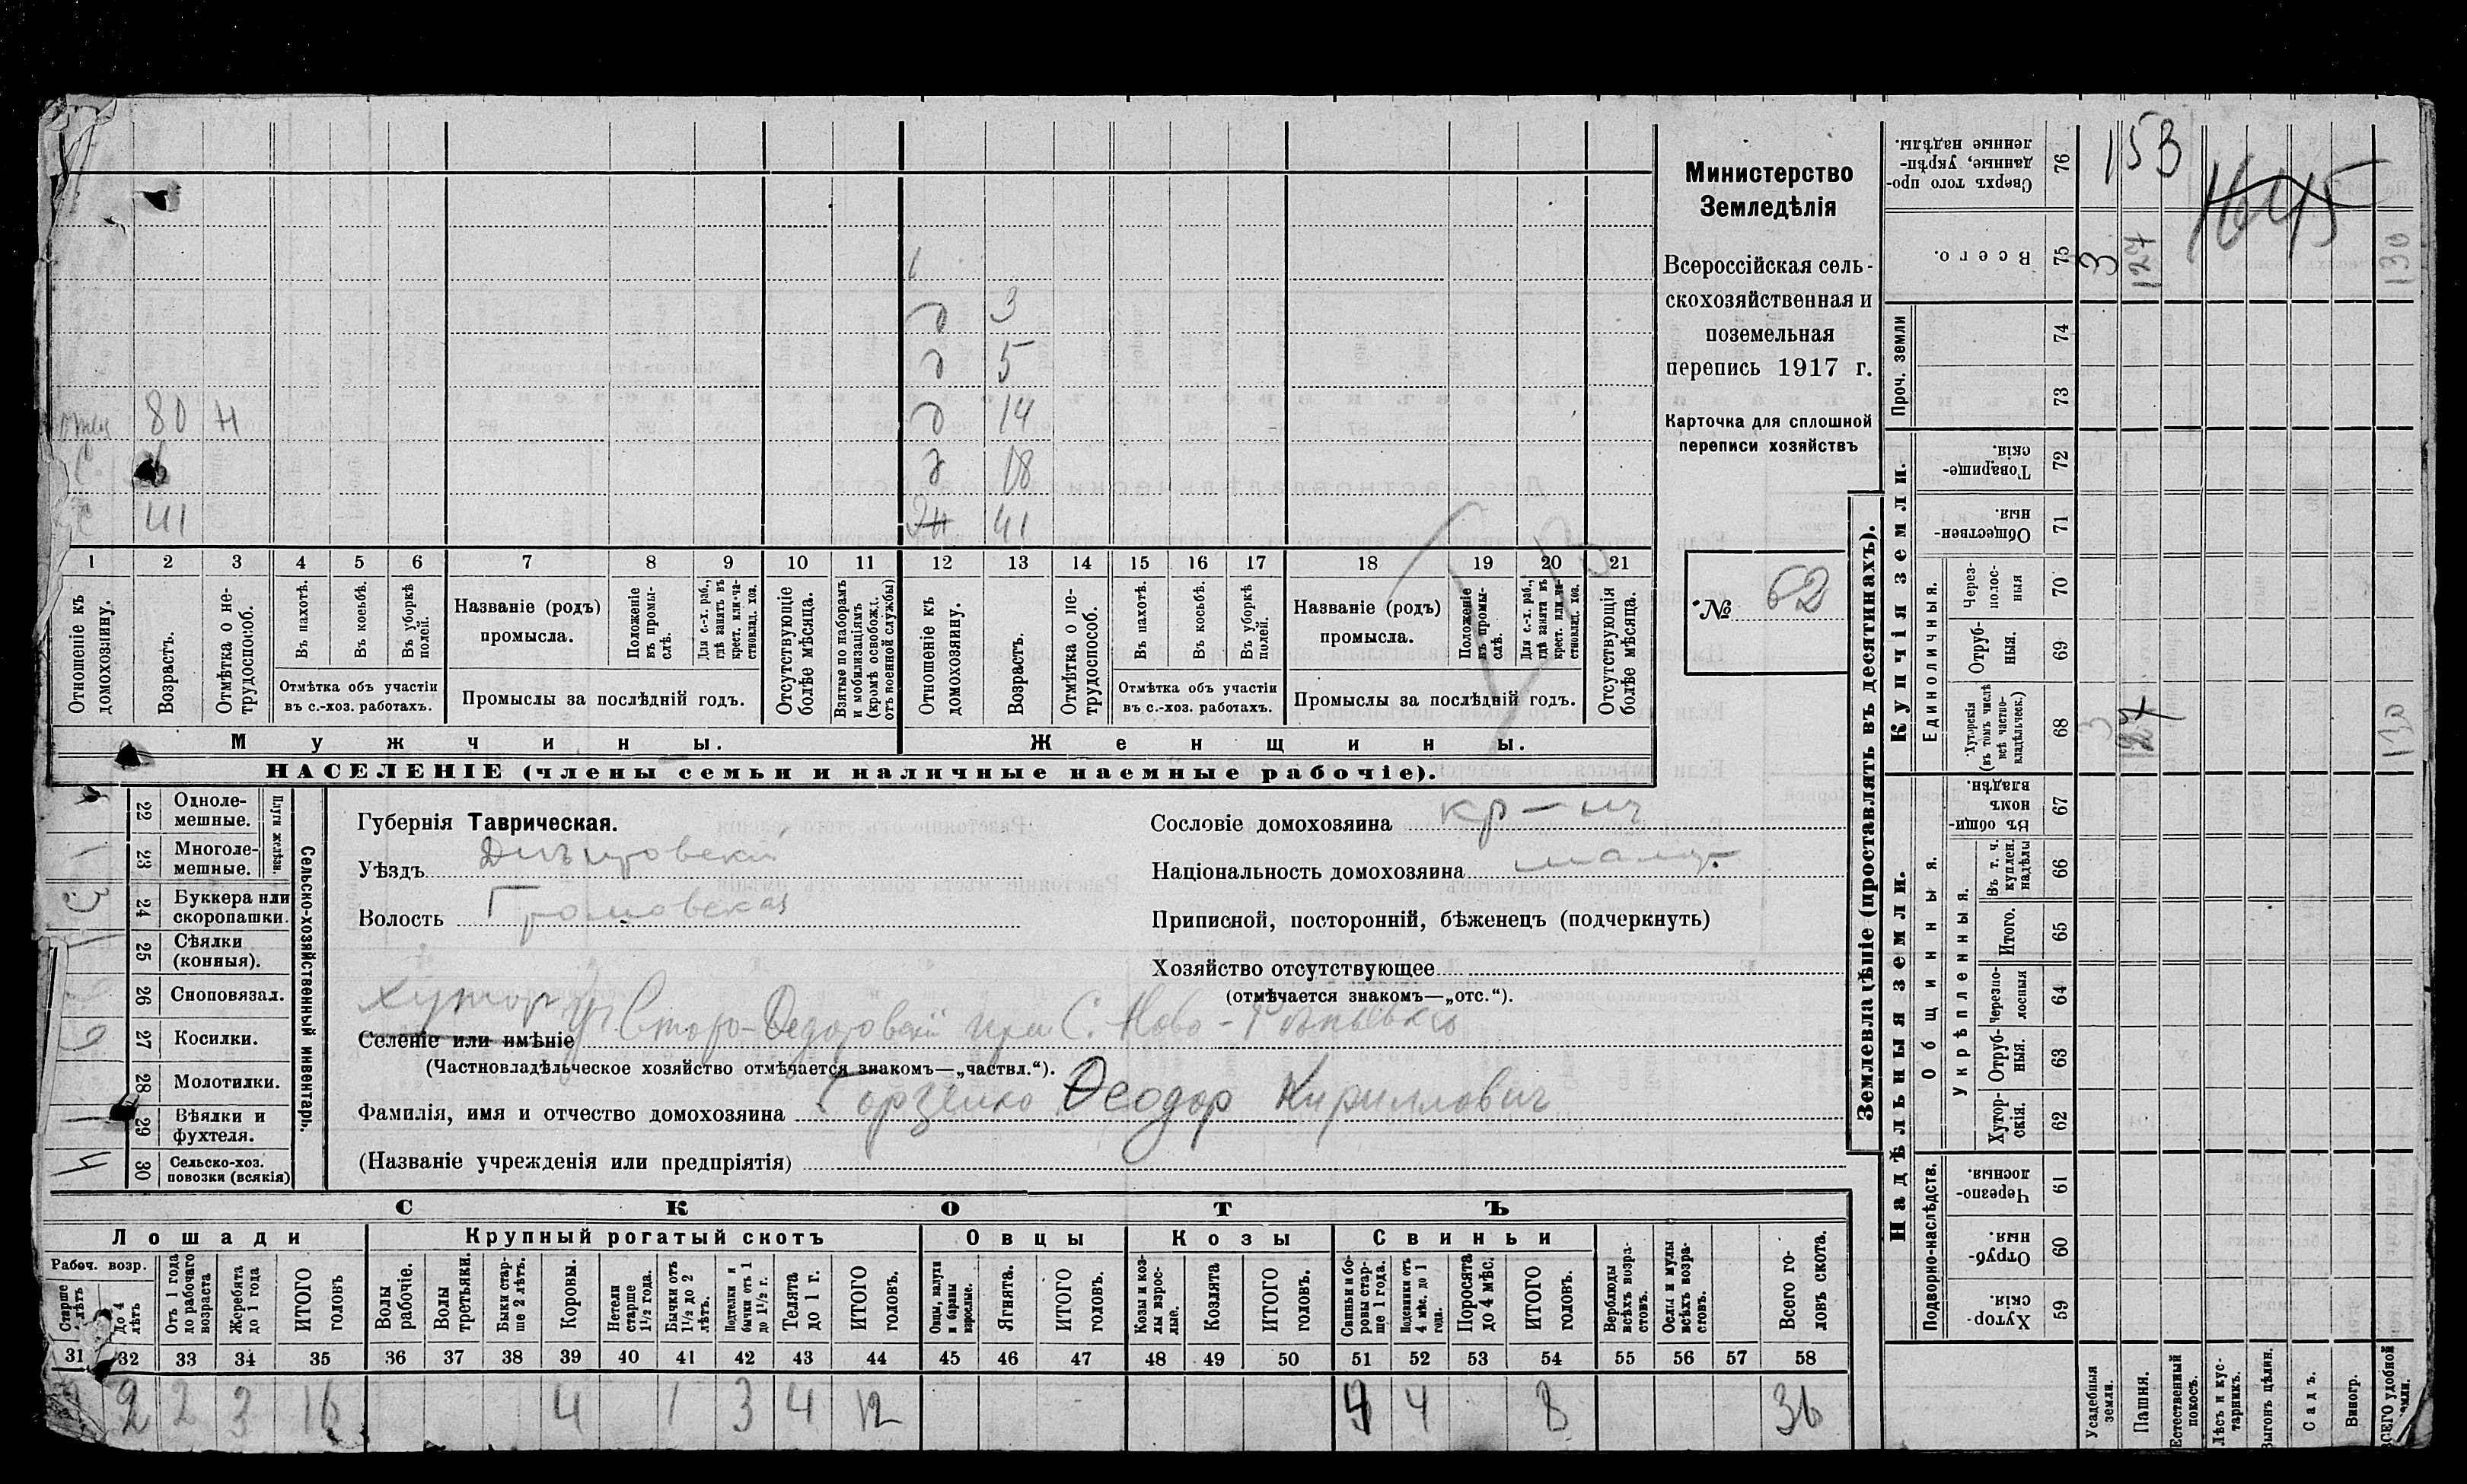 Министерство
Земледѣлія
Всероссійская сель-
скохозяйственная и
поземельная
перепись 1917 г.
Карточка для сплошной
переписи хозяйствъ
№ 62
3
5
80 н 14
с 18
с 41 41
1 2 3 4 5 6 7 8 9 10 11 12 13 14 15 16 17 18 19 20 21
Отношеніе къ домохозяину.
Возрастъ.
Отмѣтка о не-трудоспособ.
Въ пахотѣ.
Въ косьбѣ.
Въ уборкѣ полей.
Отмѣтка объ участіи
въ с.-хоз. работахъ.
Названіе (родъ)
промысла.
Положеніе въ промы-слѣ.
Для с.-х. раб., гдѣ занятъ въ крест. или ча-стновлад. хоз.
Промыслы за послѣдній годъ.
Отсутствующіе болѣе мѣсяца.
Взятые по наборамъ и мобилизаціямъ (кромѣ освобожд. отъ военной службы)
Отношеніе къ домохозяину.
Возрастъ.
Отмѣтка о не-трудоспособ.
Въ пахотѣ.
Въ косьбѣ.
Въ уборкѣ полей.
Отмѣтка объ участіи
въ с.-хоз. работахъ.
Названіе (родъ)
промысла.
Положеніе въ промы-слѣ.
Для с.-х. раб., гдѣ занята въ крест. или ча-стновлад. хоз.
Промыслы за послѣдній годъ.
Отсутствующія болѣе мѣсяца.
Мужчины.
Женщины.
НАСЕЛЕНІЕ (члены семьи и наличные наемные рабочіе).
22 Одноле-мешные.
23 Многоле-мешные.
Плуги желѣзн.
24 Буккера или скоропашки.
25 Сѣялки (конныя).
26 Сноповязал.
27 Косилки.
28 Молотилки.
29 Вѣялки и фухтеля.
30 Сельско-хоз. повозки (всякія)
Сельско-хозяйственный инвентарь.
Губернія Таврическая.
Уѣздъ Днѣпровскій
Волость Громовская
хуторъ
Селеніе или имѣніе
(Частновладѣльческое хозяйство отмѣчается знакомъ—„частвл.“).
Фамилія, имя и отчество домохозяина Горзенко Ѳеодор Кириллович
(Названіе учрежденія или предпріятія)
Сословіе домохозяина кр-нъ
Національность домохозяина малор.
Приписной, посторонній, бѣженецъ (подчеркнуть)
Хозяйство отсутствующее
(отмѣчается знакомъ—„отс.“).
СКОТЪ
Лошади
Крупный рогатый скотъ
Овцы
Козы
Свиньи
Рабоч. возр.
Старше 4 лѣтъ
До 4 лѣтъ
Отъ 1 года до рабочаго возраста
Жеребята до 1 года
ИТОГО головъ
Волы рабочіе.
Волы третьяки.
Быки стар-ше 2 лѣтъ.
Коровы.
Нетели старше 1½ года.
Бычки отъ 1½ до 2 лѣтъ.
Подтелки и бычки отъ 1 до 1½ г.
Телята до 1 г.
ИТОГО головъ.
Овцы, валухи и бараны взрослые.
Ягнята.
ИТОГО головъ.
Козы и коз-лы взрос-лые.
Козлята
ИТОГО головъ.
Свиньи и бо-ровы стар-ше 1 года.
Подсвинки отъ 4 мѣс. до 1 года.
Поросята до 4 мѣс.
ИТОГО головъ.
Верблюды всѣхъ возра-стовъ.
Ослы и мулы всѣхъ возра-стовъ.
Всего го-ловъ скота.
31 32 33 34 35 36 37 38 39 40 41 42 43 44 45 46 47 48 49 50 51 52 53 54 55 56 57 58
2 2 3 16 4 1 3 4 12 4 4 8 36
Землевладѣніе (проставлять въ десятинахъ).
Купчія земли.
Надѣльныя земли.
76 Сверхъ того про-данные, укрѣп-ленные надѣлы. 153
75 Всего. 3 127 130
Проч. земли
74
73
72 Товарище-скія.
71 Обществен-ныя.
Единоличныя.
70 Через-полос-ныя
69 Отруб-ныя.
68 Хуторскія (въ томъ числѣ всѣ частно-владѣльческ.) 3 127 130
Общинныя.
67 Въ общин-номъ владѣн.
Укрѣпленныя.
66 Въ т. ч. куплен. надѣлы
65 Итого.
64 Черезпо-лосныя
63 Отруб-ныя.
62 Хутор-скія.
Подворно-наслѣдств.
61 Черезпо-лосныя.
60 Отруб-ныя.
59 Хутор-скія.
Усадебныя земли.
Пашня.
Естественный покосъ.
Лѣсъ и кус-тарникъ.
Выгонъ цѣлин.
Садъ.
Виногр.
ВСЕГО удобной земли.